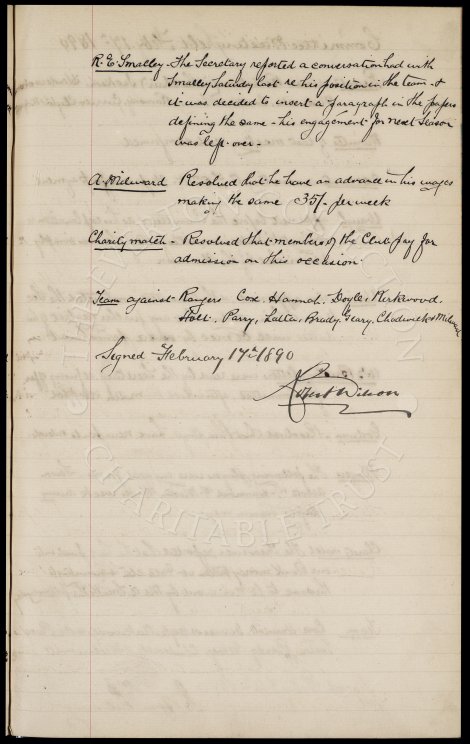 R. E. Smalley - The Secretary reported a conversation had with
Smalley Saturday last re his position in the team - &
it was decided to insert a paragraph in the papers
defining the same - his engagement for next season
was left over -
A. Milward Resolved that he have an advance in his wages
making the same 35/- per week
Charity match - Resolved that members of the Club pay for
admission on this occasion.
Team against Rangers Cox, Hannah, Doyle, Kirkwood,
Holt, Parry, Latta, Brady, Geary, Chadwick & Milward
Signed February 17th 1890
Wilson
CHARITABLE TRUST